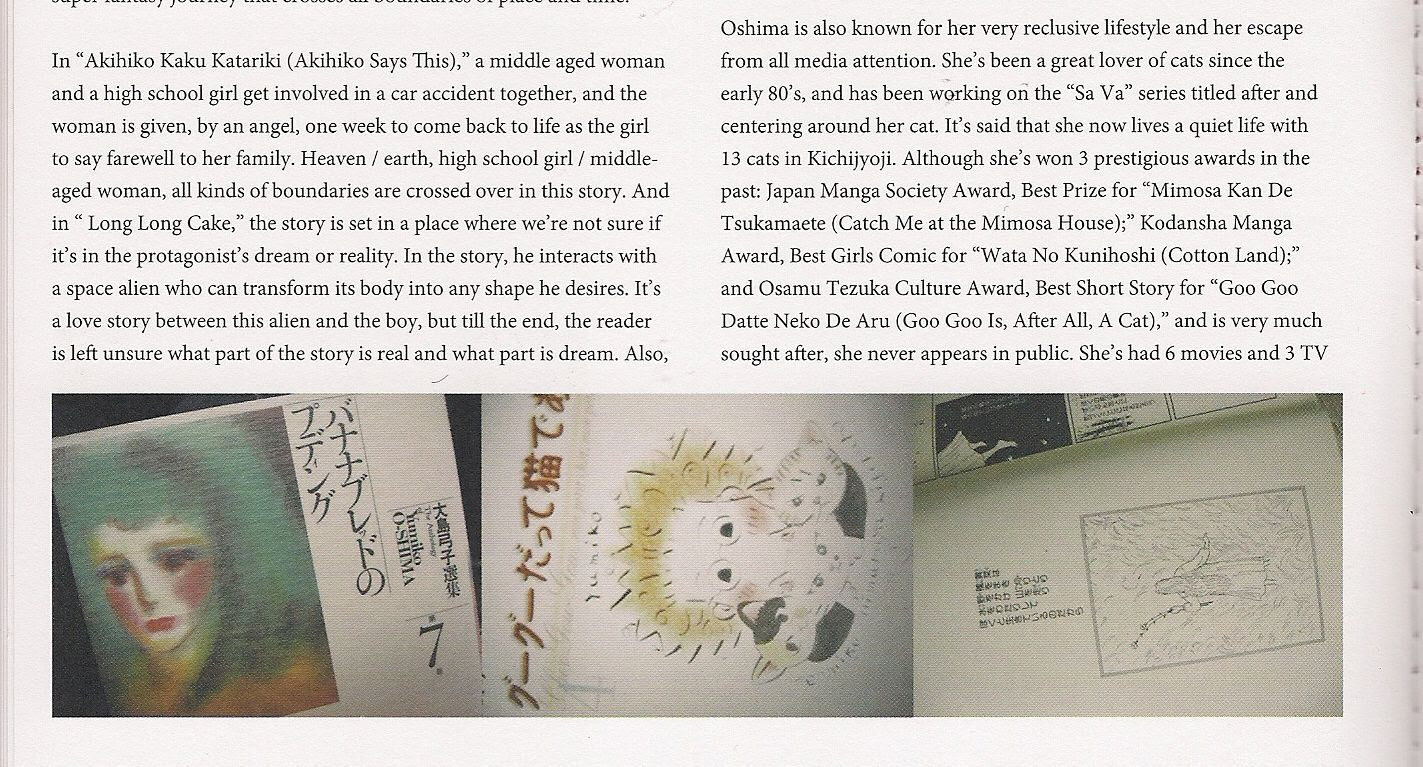 super fantasy journey that crosses all boundaries of place and time.
In “Akihiko Kaku Katariki (Akihiko Says This),” a middle aged woman
and a high school girl get involved in a car accident together, and the
woman is given, by an angel, one week to come back to life as the girl
to say farewell to her family. Heaven / earth, high school girl / middle-
aged woman, all kinds of boundaries are crossed over in this story. And
in “ Long Long Cake,” the story is set in a place where we’re not sure if
it’s in the protagonist’s dream or reality. In the story, he interacts with
a space alien who can transform its body into any shape he desires. It’s
a love story between this alien and the boy, but till the end, the reader
is left unsure what part of the story is real and what part is dream. Also,
Oshima is also known for her very reclusive lifestyle and her escape
from all media attention. She’s been a great lover of cats since the
early 80’s, and has been working on the “Sa Va” series titled after and
centering around her cat. It’s said that she now lives a quiet life with
13 cats in Kichijyoji. Although she’s won 3 prestigious awards in the
past: Japan Manga Society Award, Best Prize for “Mimosa Kan De
Tsukamaete (Catch Me at the Mimosa House);” Kodansha Manga
Award, Best Girls Comic for “Wata No Kunihoshi (Cotton Land);”
and Osamu Tezuka Culture Award, Best Short Story for “Goo Goo
Datte Neko De Aru (Goo Goo Is, After All, A Cat),” and is very much
sought after, she never appears in public. She’s had 6 movies and 3 TV
バナナブレッドの
プディング
大島弓子選集
Yumiko
O-SHIMA
第7巻
グーグーだって猫であ
yumiko